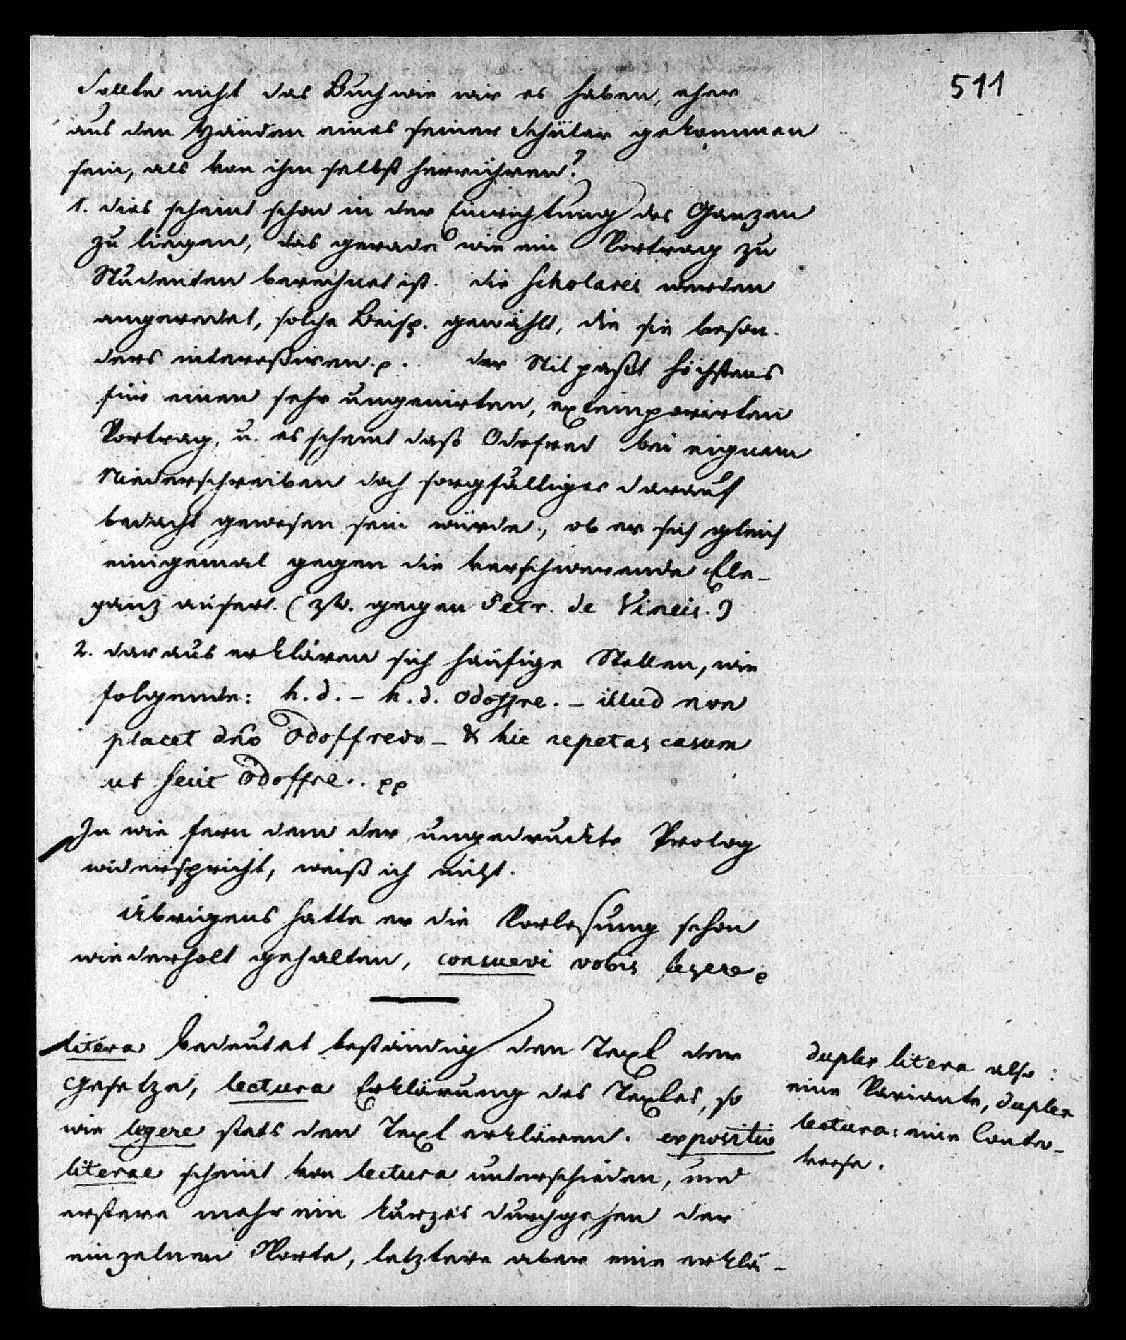 511
Sollte nicht das Buch wie wir es haben, eher
aus den Händen eines seiner Schüler gekommen
sein, als von ihm selbst herrühren?
1. dies scheint schon in der Einrichtung des Ganzen
zu liegen, das gerade wie ein Vortrag zu
Studenten berechnet ist. die scholares werden
angeredet, solche Beisp. gewählt, die sie beson-
ders interessiren p. der Stil paßt höchstens
für einen sehr ungenirten, extemporirten
Vortrag, u. es scheint daß Odofred bei eignem
Niederschreiben doch sorgfältiger darauf
bedacht gewesen sein würde, ob er sich gleich
einigemal gegen die Ele-
ganz äusert. (zb. gegen Petr. de Vineis.)
2. daraus erklären sich häufige Stellen, wie
folgende: h. d. – h. d. Odoffre. – illud non
placet dno Odoffredo – & hic repetas casum
ut fecit Odoffre.. pp
In wie fern dem der ungedruckte Prolog
widerspricht, weiß ich nicht.
Übrigens hatte er die Vorlesung schon
wiederholt gehalten, consuevi vobis legere p
litera bedeutet beständig den Text der
Gesetze, lectura Erklärung des Textes, so
wie legere stets den Text erklären. expositio
literae scheint von lectura unterschieden, und
erstere mehr ein kurzes durchgehen der
einzelnen Worte, letztere aber eine erklä-
duplex litera also:
eine Variante, duplex
lectura: eine Contro-
verse.